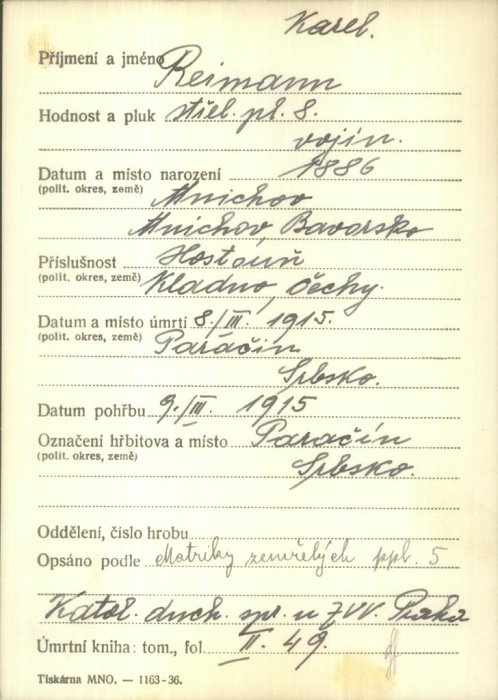 Karel.
Příjmení a jméno Reimann
Hodnost a pluk střel. pl. 8.
vojín.
Datum a místo narození 1886
(polit. okres, země) Mnichov
Mnichov, Bavorsko
Příslušnost Hostouň
(polit. okres, země) Kladno, Čechy.
Datum a místo úmrtí 8./III. 1915.
(polit. okres, země) Paračín
Srbsko.
Datum pohřbu 9./III. 1915
Označení hřbitova a místo Paračín
(polit. okres, země) Srbsko.
Oddělení, číslo hrobu
Opsáno podle Matriky zemřelých ppl. 5
Katol. duch. spr. u ZVV. Praha
Úmrtní kniha: tom., fol. II. 49.
Tiskárna MNO. — 1163-36.